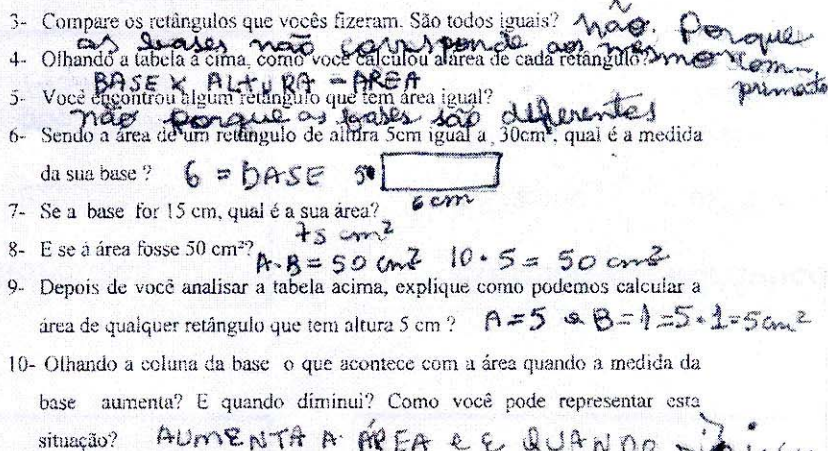 3- Compare os retângulos que vocês fizeram. São todos iguais? não. Porque
as bases não corresponde ao mesmo com-
primento
4- Olhando a tabela a cima, como você calculou a área de cada retângulo?
BASE X ALTURA = AREA
5- Você encontrou algum retângulo que tem área igual?
não porque as bases são deferentes
6- Sendo a área de um retângulo de altura 5cm igual a 30cm², qual é a medida
da sua base ? 6 = BASE 5
6 cm
7- Se a base for 15 cm, qual é a sua área?
75 cm²
8- E se a área fosse 50 cm²? A.B = 50 cm² 10 . 5 = 50 cm²
9- Depois de você analisar a tabela acima, explique como podemos calcular a
área de qualquer retângulo que tem altura 5 cm ? A=5 e B=1=5.1=5cm²
10- Olhando a coluna da base o que acontece com a área quando a medida da
base aumenta? E quando diminui? Como você pode representar esta
situação? AUMENTA A ÁREA e E QUANDO